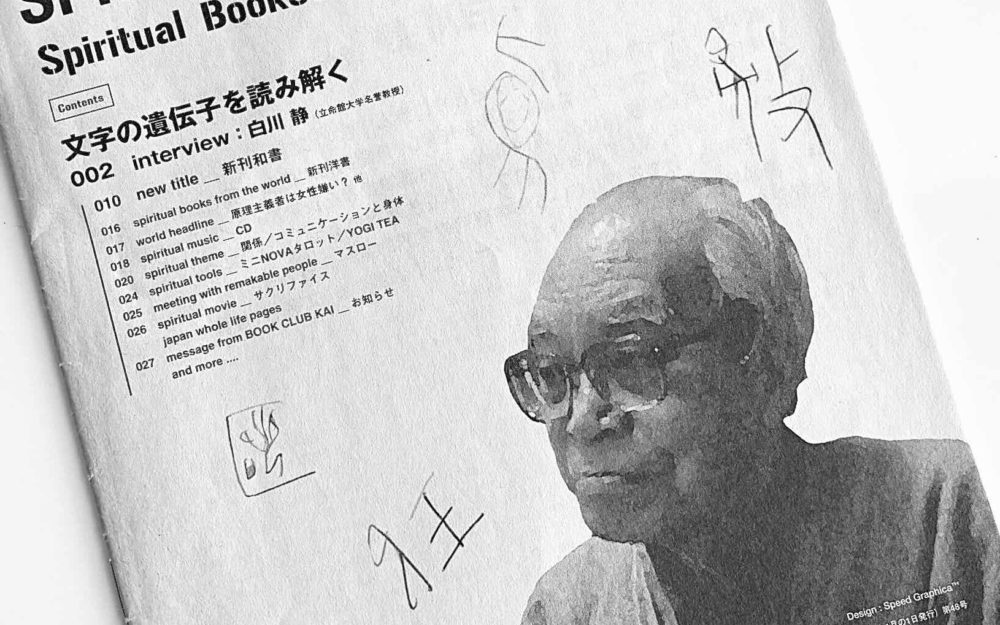 Spiritual Books
Contents
文字の遺伝子を読み解く
002 interview：白川 静（立命館大学名誉教授）
010 new title __ 新刊和書
016 spiritual books from the world __ 新刊洋書
017 world headline __ 原理主義者は女性嫌い？ 他
018 spiritual music __ CD
020 spiritual theme __ 関係／コミュニケーションと身体
024 spiritual tools __ ミニNOVAタロット／YOGI TEA
025 meeting with remakable people __ マスロー
026 spiritual movie __ サクリファイス
japan whole life pages
027 message from BOOK CLUB KAI __ お知らせ
and more ....
Design : Speed Graphica™
月の1日発行）第48号